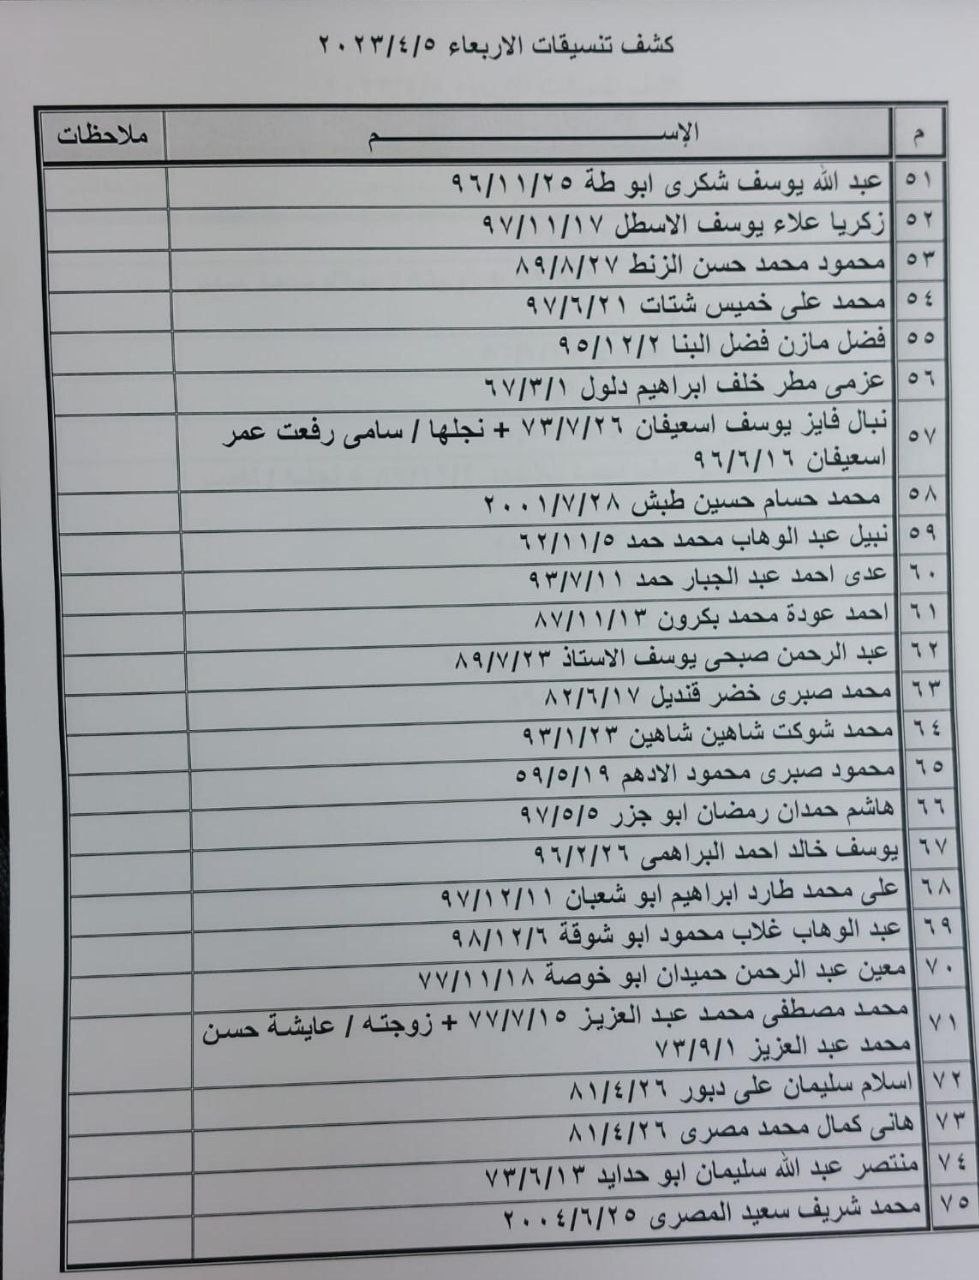 كشف تنسيقات الاربعاء ٢٠٢٣/٤/٥
م الإســـــم ملاحظات
٥١ عبد الله يوسف شكرى ابو طة ٩٦/١١/٢٥
٥٢ زكريا علاء يوسف الاسطل ٩٧/١١/١٧
٥٣ محمود محمد حسن الزنط ٨٩/٨/٢٧
٥٤ محمد على خميس شتات ٩٧/٦/٢١
٥٥ فضل مازن فضل البنا ٩٥/١٢/٢
٥٦ عزمى مطر خلف ابراهيم دلول ٦٧/٣/١
٥٧ نبال فايز يوسف اسعيفان ٧٣/٧/٢٦ + نجلها / سامى رفعت عمر
اسعيفان ٩٦/٦/١٦
٥٨ محمد حسام حسين طبش ٢٠٠١/٧/٢٨
٥٩ نبيل عبد الوهاب محمد حمد ٦٢/١١/٥
٦٠ عدى احمد عبد الجبار حمد ٩٣/٧/١١
٦١ احمد عودة محمد بكرون ٨٧/١١/١٣
٦٢ عبد الرحمن صبحى يوسف الاستاذ ٨٩/٧/٢٣
٦٣ محمد صبرى خضر قنديل ٨٢/٦/١٧
٦٤ محمد شوكت شاهين شاهين ٩٣/١/٢٣
٦٥ محمود صبرى محمود الادهم ٥٩/٥/١٩
٦٦ هاشم حمدان رمضان ابو جزر ٩٧/٥/٥
٦٧ يوسف خالد احمد البراهمى ٩٦/٢/٢٦
٦٨ على محمد طارد ابراهيم ابو شعبان ٩٧/١٢/١١
٦٩ عبد الوهاب غلاب محمود ابو شوقة ٩٨/١٢/٦
٧٠ معين عبد الرحمن حميدان ابو خوصة ٧٧/١١/١٨
٧١ محمد مصطفى محمد عبد العزيز ٧٧/٧/١٥ + زوجته / عايشة حسن
محمد عبد العزيز ٧٣/٩/١
٧٢ اسلام سليمان على دبور ٨١/٤/٢٦
٧٣ هانى كمال محمد مصرى ٨١/٤/٢٦
٧٤ منتصر عبد الله سليمان ابو حدايد ٧٣/٦/١٣
٧٥ محمد شريف سعيد المصرى ٢٠٠٤/٦/٢٥